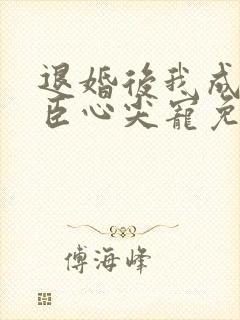 退婚後我成
臣心尖寵免
傅海峰